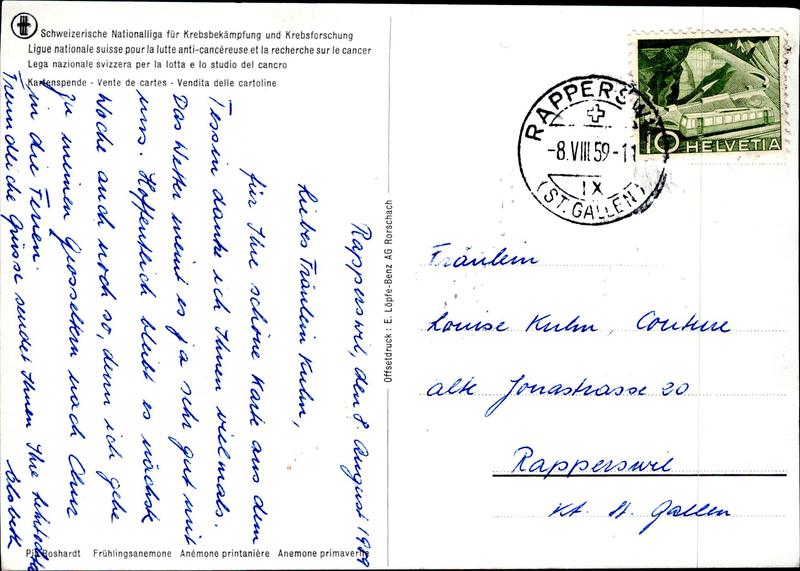 Schweizerische Nationalliga für Krebsbekämpfung und Krebsforschung
Ligue nationale suisse pour la lutte anti-cancéreuse et la recherche sur le cancer
Lega nazionale svizzera per la lotta e lo studio del cancro
Kartenspende - Vente de cartes - Vendita delle cartoline
Rapperswil, den 8. August 1959
Liebes Fräulein Kuhn,
für Ihre schöne Karte aus dem
Tessin danke ich Ihnen vielmals.
Das Wetter meint es ja sehr gut mit
uns. Hoffentlich bleibt es nächste
Woche auch noch so, denn ich gehe
zu meinen Grosseltern nach Chur
in die Ferien.
Freundliche Grüsse sendet Ihnen Ihre
Elsbeth
Pia Roshardt Frühlingsanemone Anémone printanière Anemone primaverile
Offsetdruck: E. Löpfe-Benz AG Rorschach
RAPPERSWIL
-8.VIII.59-11
IX
(ST. GALLEN)
10 HELVETIA
Fräulein
Louise Kuhn, Couture
alte Jonastrasse 20
Rapperswil
Kt. St. Gallen